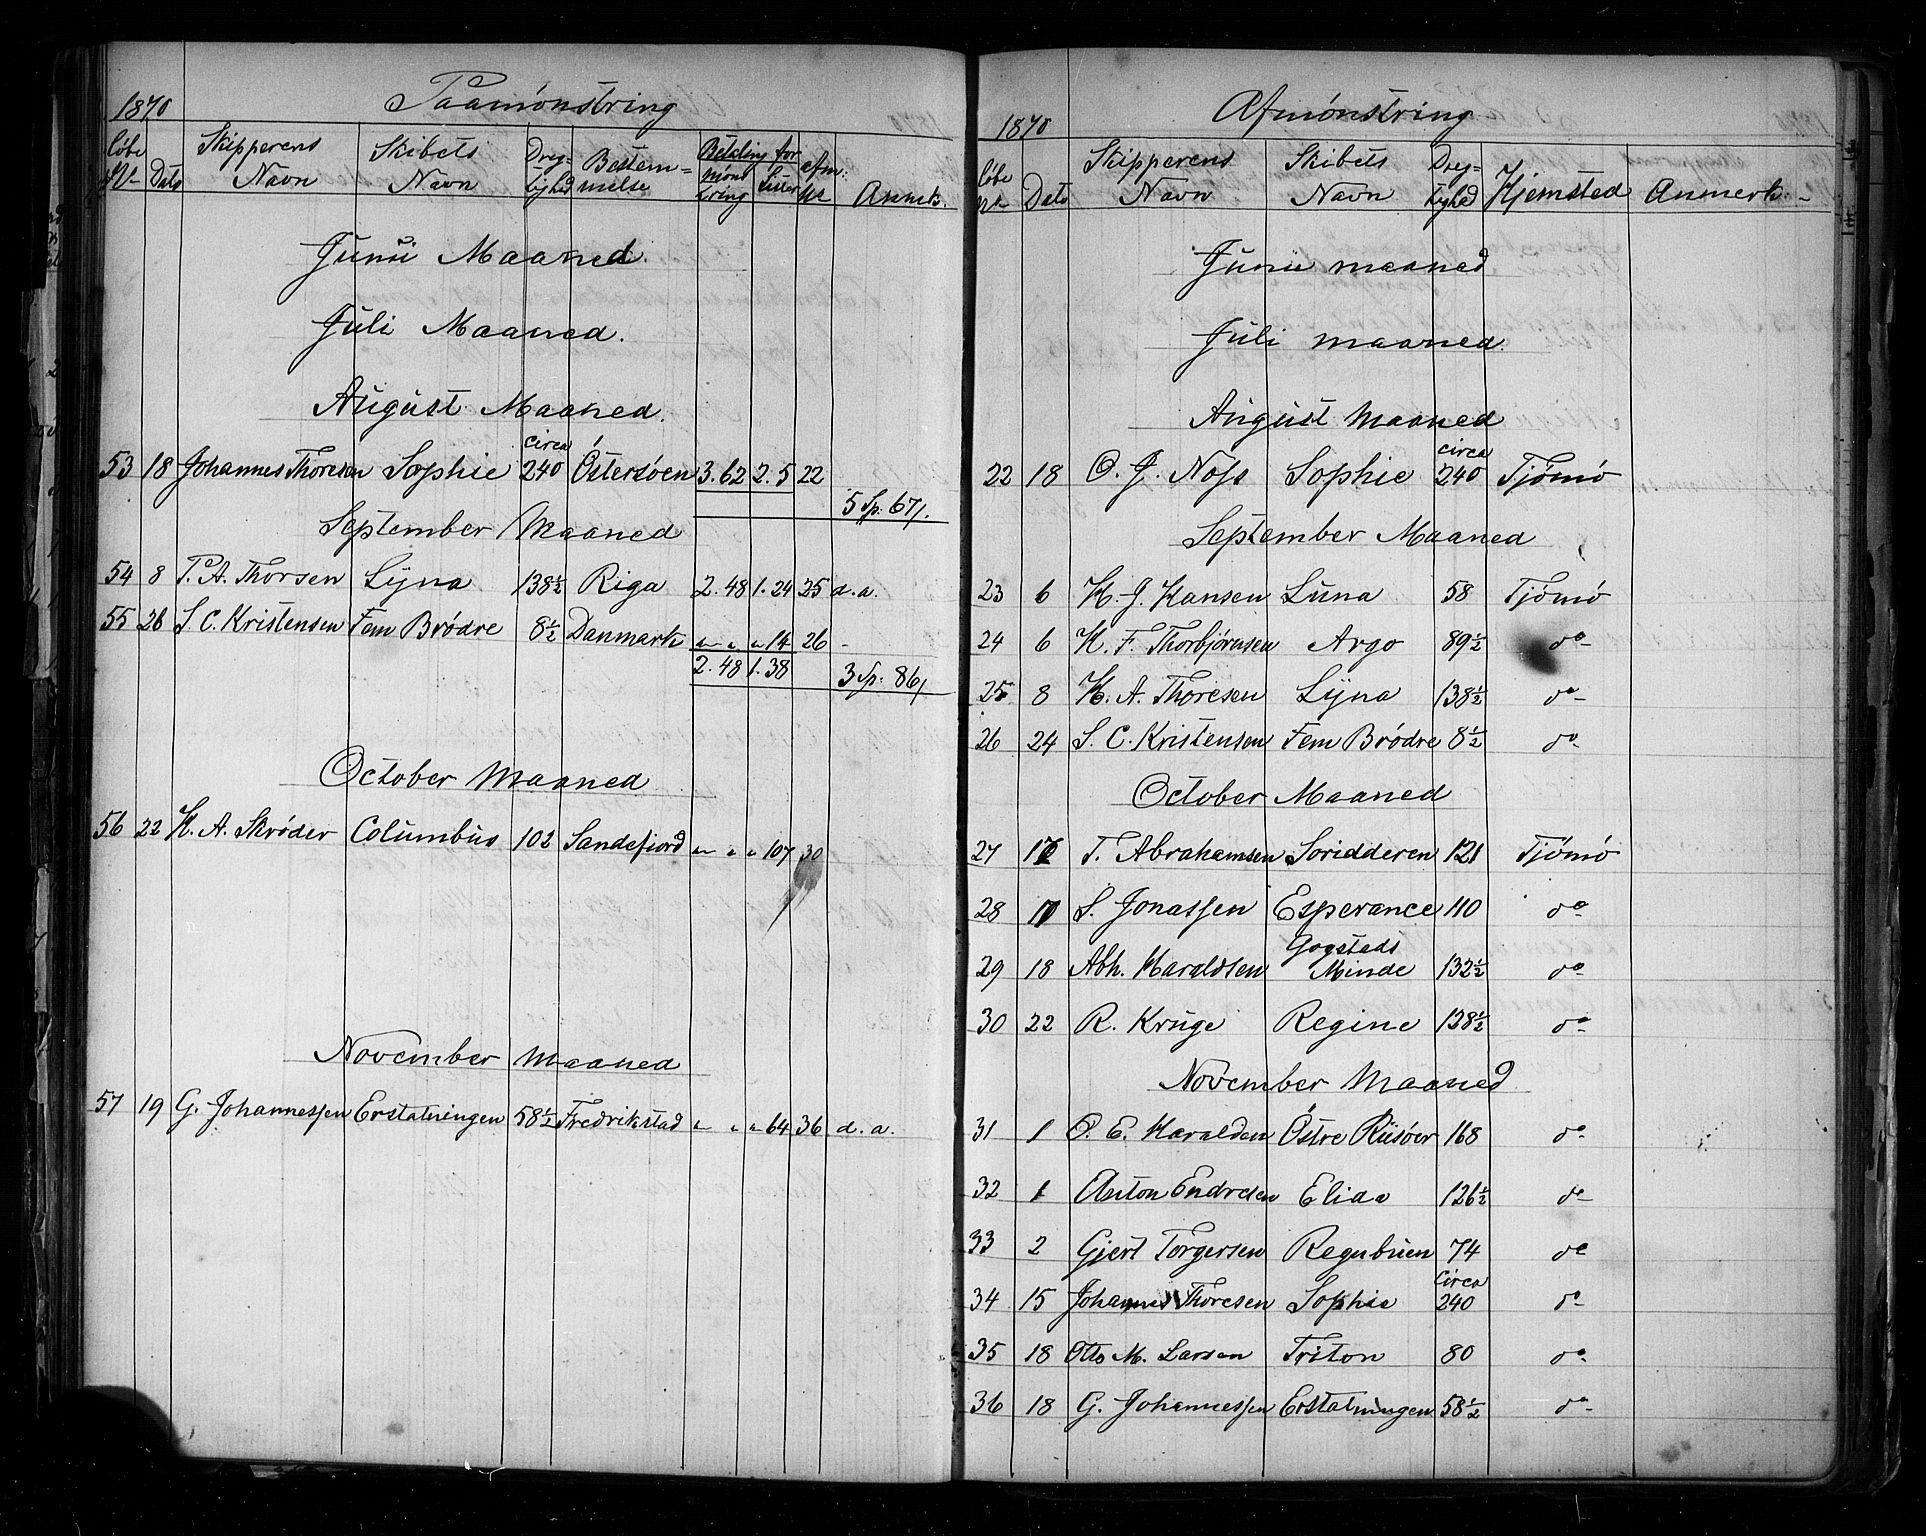 1870 Paamønstring
Løbe N- Dato Skipperens Navn Skibets Navn Dreg-tighed Bestem-melse Betaling for mønstring Lister afm: № Anmerk.
Junii Maaned.
Juli Maaned.
August Maaned.
53 18 Johannes Thoresen Sophie circa 240 Østersøen 3.62 2.5 22
5 Sp. 67/.
September Maaned
54 8 T. A. Thorsen Lyna 138½ Riga 2.48 1.24 25 d.a.
55 26 S. C. Kristensen Fem Brødre 8½ Danmark " " " 14 26 -
2.48 1.38 3 Sp. 86/
October Maaned
56 22 H. A. Skrøder Columbus 102 Sandefiord " " " 107 30
November Maaned
57 19 G. Johannessen Erstatningen 58½ Fredrikstad " " " 64 36 d. a.
1870 Afmønstring
Løbe № Dato Skipperens Navn Skibets Navn Dreg-tighed Hjemsted Anmerk.
Junii maaned
Juli maaned.
August Maaned
22 18 O. J. Nøss Sophie circa 240 Tjømø
September Maaned
23 6 H. J. Hansen Luna 58 Tjømø
24 6 H. F. Thorbjørnsen Argo 89½ do
25 8 H. A. Thoresen Lyna 138½ do
26 24 S. C. Kristensen Fem Brødre 8½ do
October Maaned
27 17 T. Abrahamsen Soridderen 121 Tjømø
28 17 S. Jonassen Esperance 110 do
29 18 Abh. Haraldsen Gogstads Minde 132½ do
30 22 R. Kruge Regine 138½ do
November Maaned
31 1 O. E. Haralden Østre Riisøer 168 do
32 1 Anton Endresen Elida 126½ do
33 2 Gjert Torgersen Regnbuen 74 do
34 15 Johannes Thoresen Sophie circa 240 do
35 18 Otto M. Larsen Triton 80 do
36 18 G. Johannessen Erstatningen 58½ do